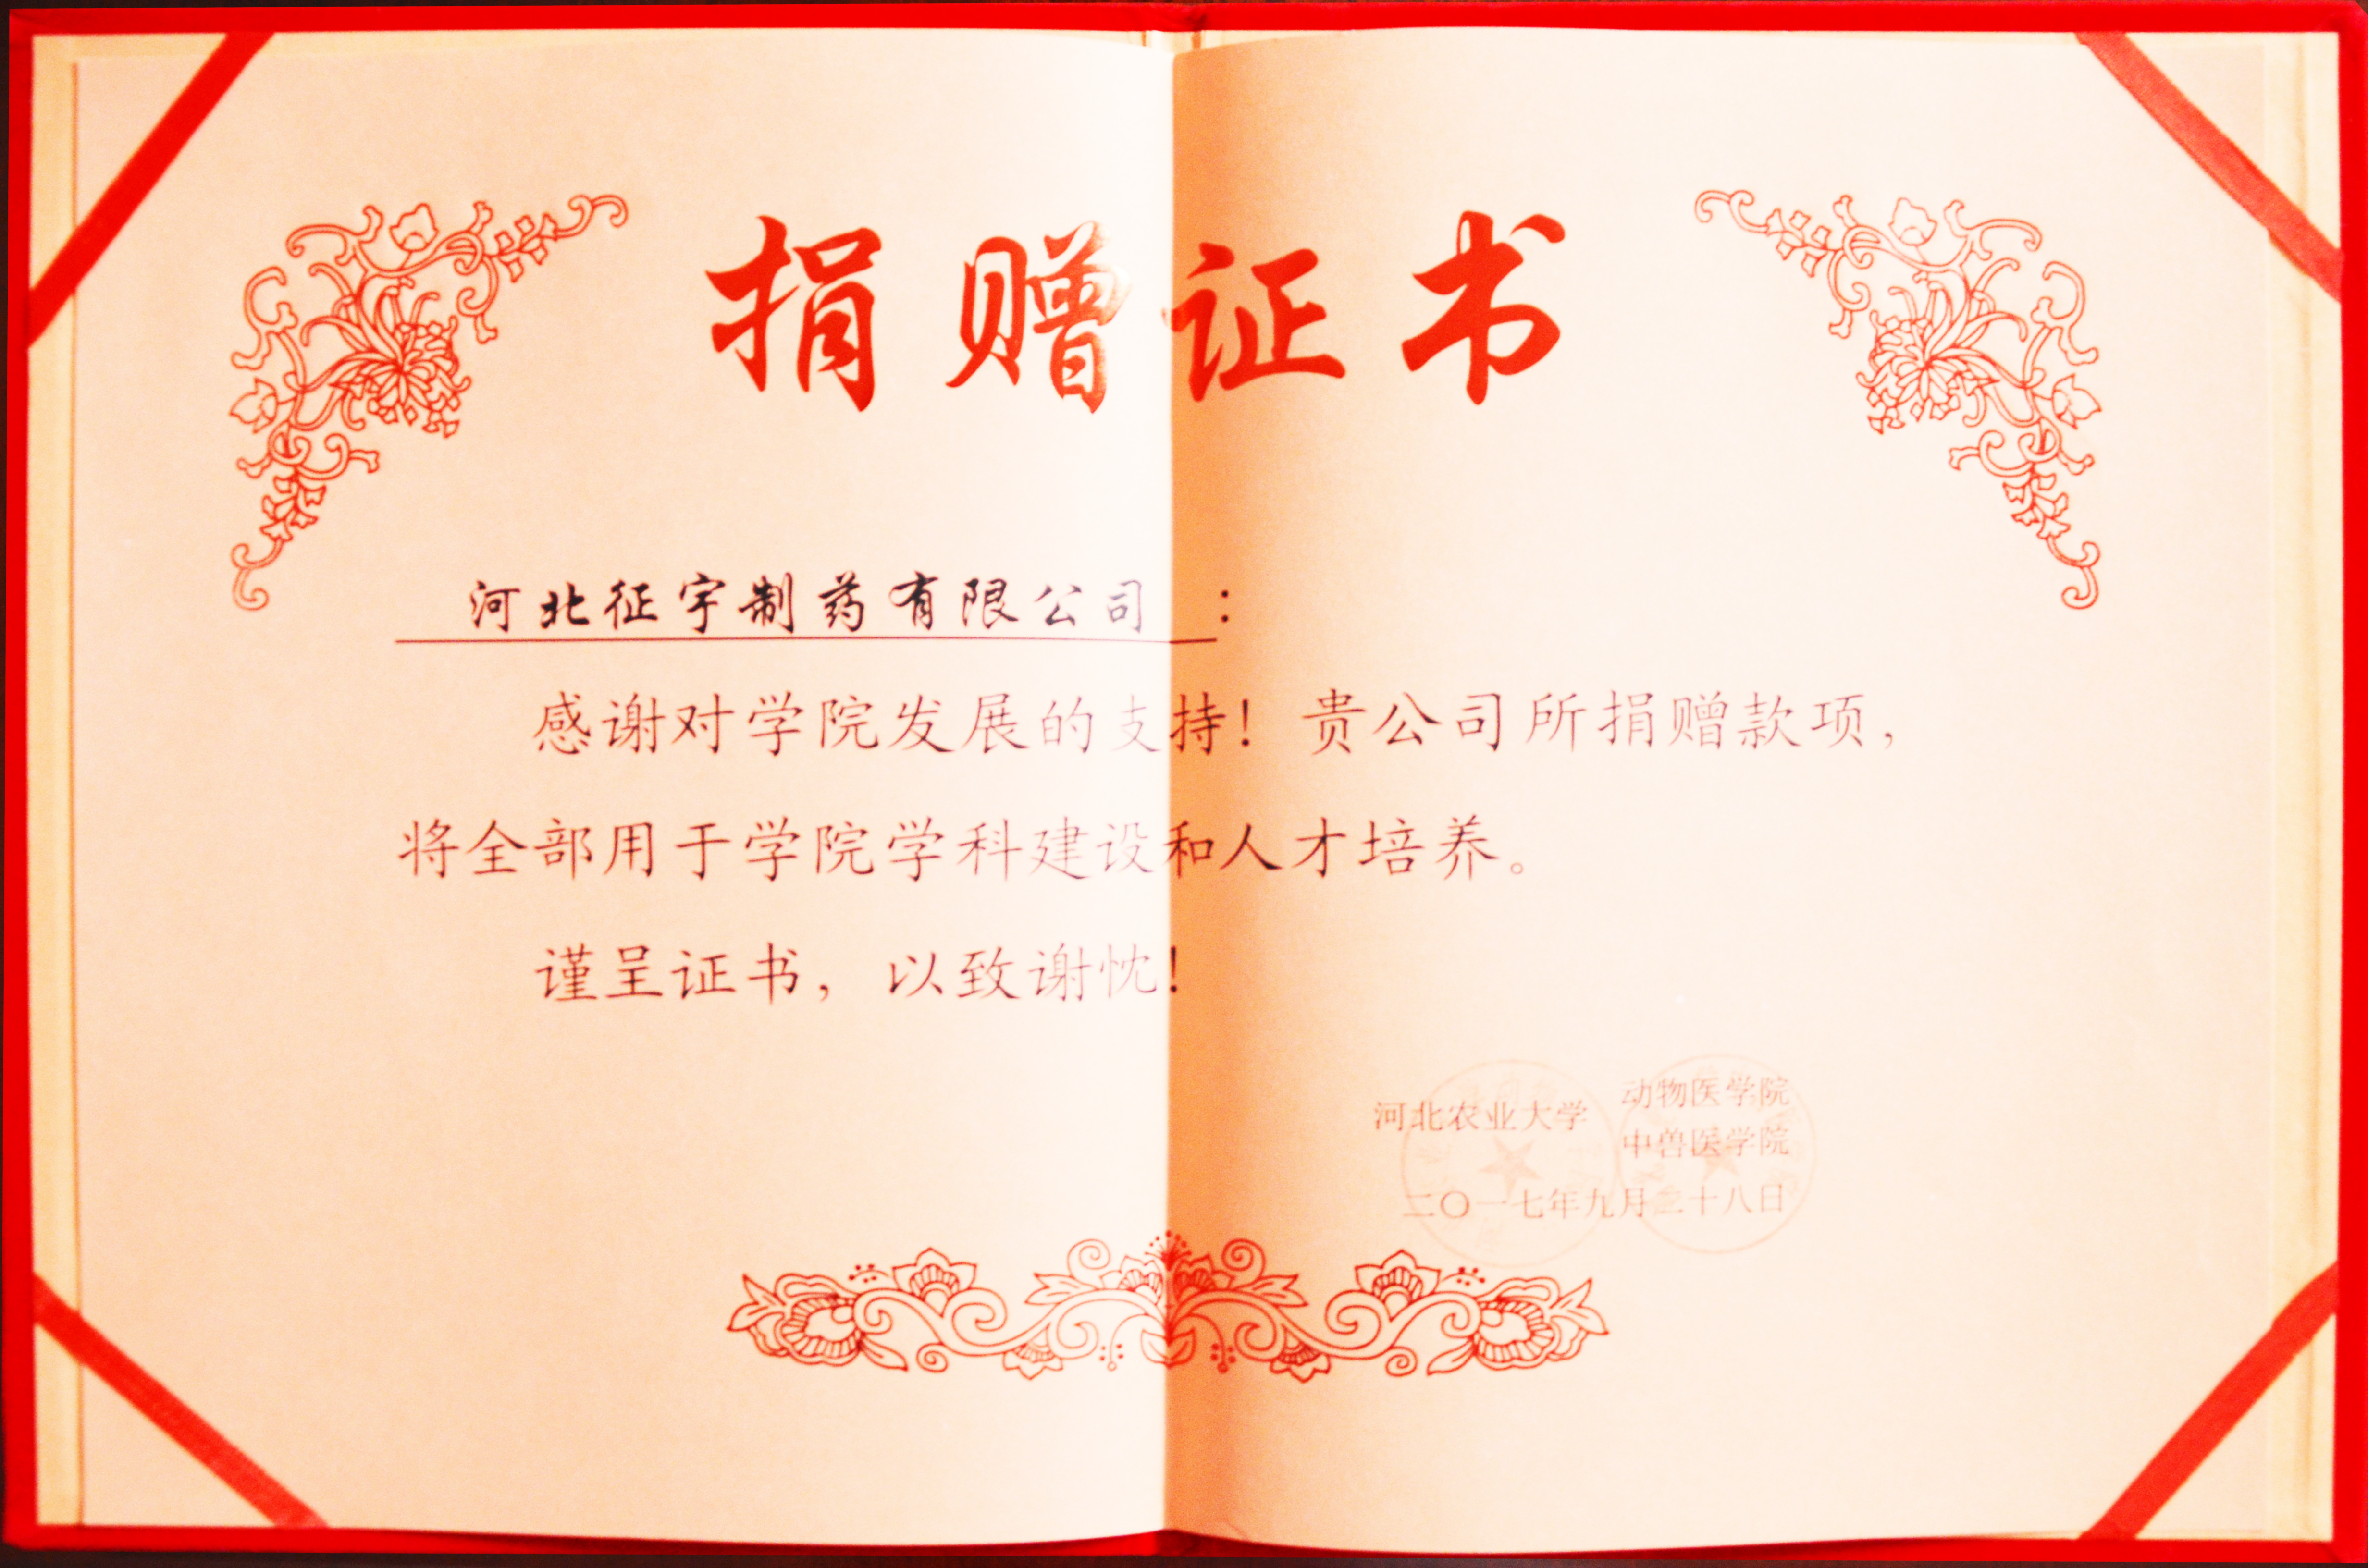 捐赠证书
河北征宇制药有限公司：
感谢对学院发展的支持！贵公司所捐赠款项，
将全部用于学院学科建设和人才培养。
谨呈证书，以致谢忱！
河北农业大学 动物医学院
中兽医学院
二〇一七年九月二十八日